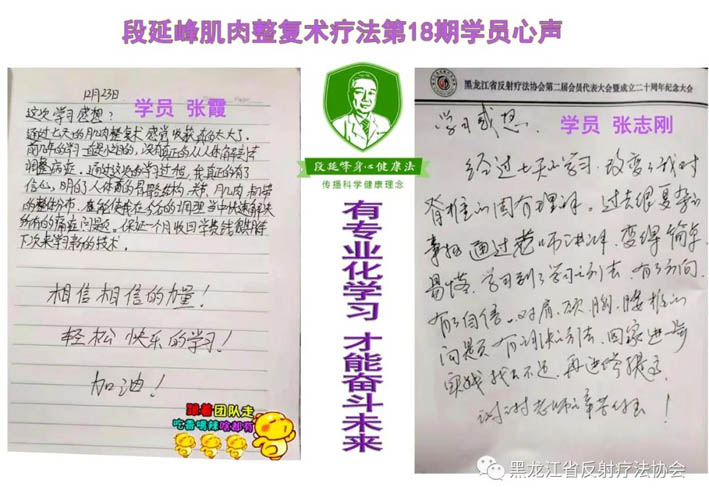 段延峰肌肉整复术疗法第18期学员心声
12月23日
学员 张霞
这次学习感想:
通过七天的肌肉整复术 感觉收获真的太大了。
信心,明白了人体
的整体分布,在能使我在今后的调理当中快速解决
所有的痛症问题。保证一个月收回学费
下次来学习新的技术。
相信相信的力量!
轻松快乐的学习!
加油!
跟着团队走
吃香喝辣啥都有
段延峰身心健康法
传播科学健康理念
有专业化学习 才能奋斗未来
黑龙江省反射疗法协会第二届会员代表大会暨成立二十周年纪念大会
学习感想:
学员 张志刚
经过七天的学习,改变了我对
脊椎的固有理解。过去很复杂的
事情通过老师讲解,变得简单
易懂,学习到了学习方法,有了方向
有了自信。对肩、颈、胸、腰椎的
问题有了解决方法,回家进一步
实践找不足,再次学提高
谢谢老师辛苦付出!
黑龙江省反射疗法协会